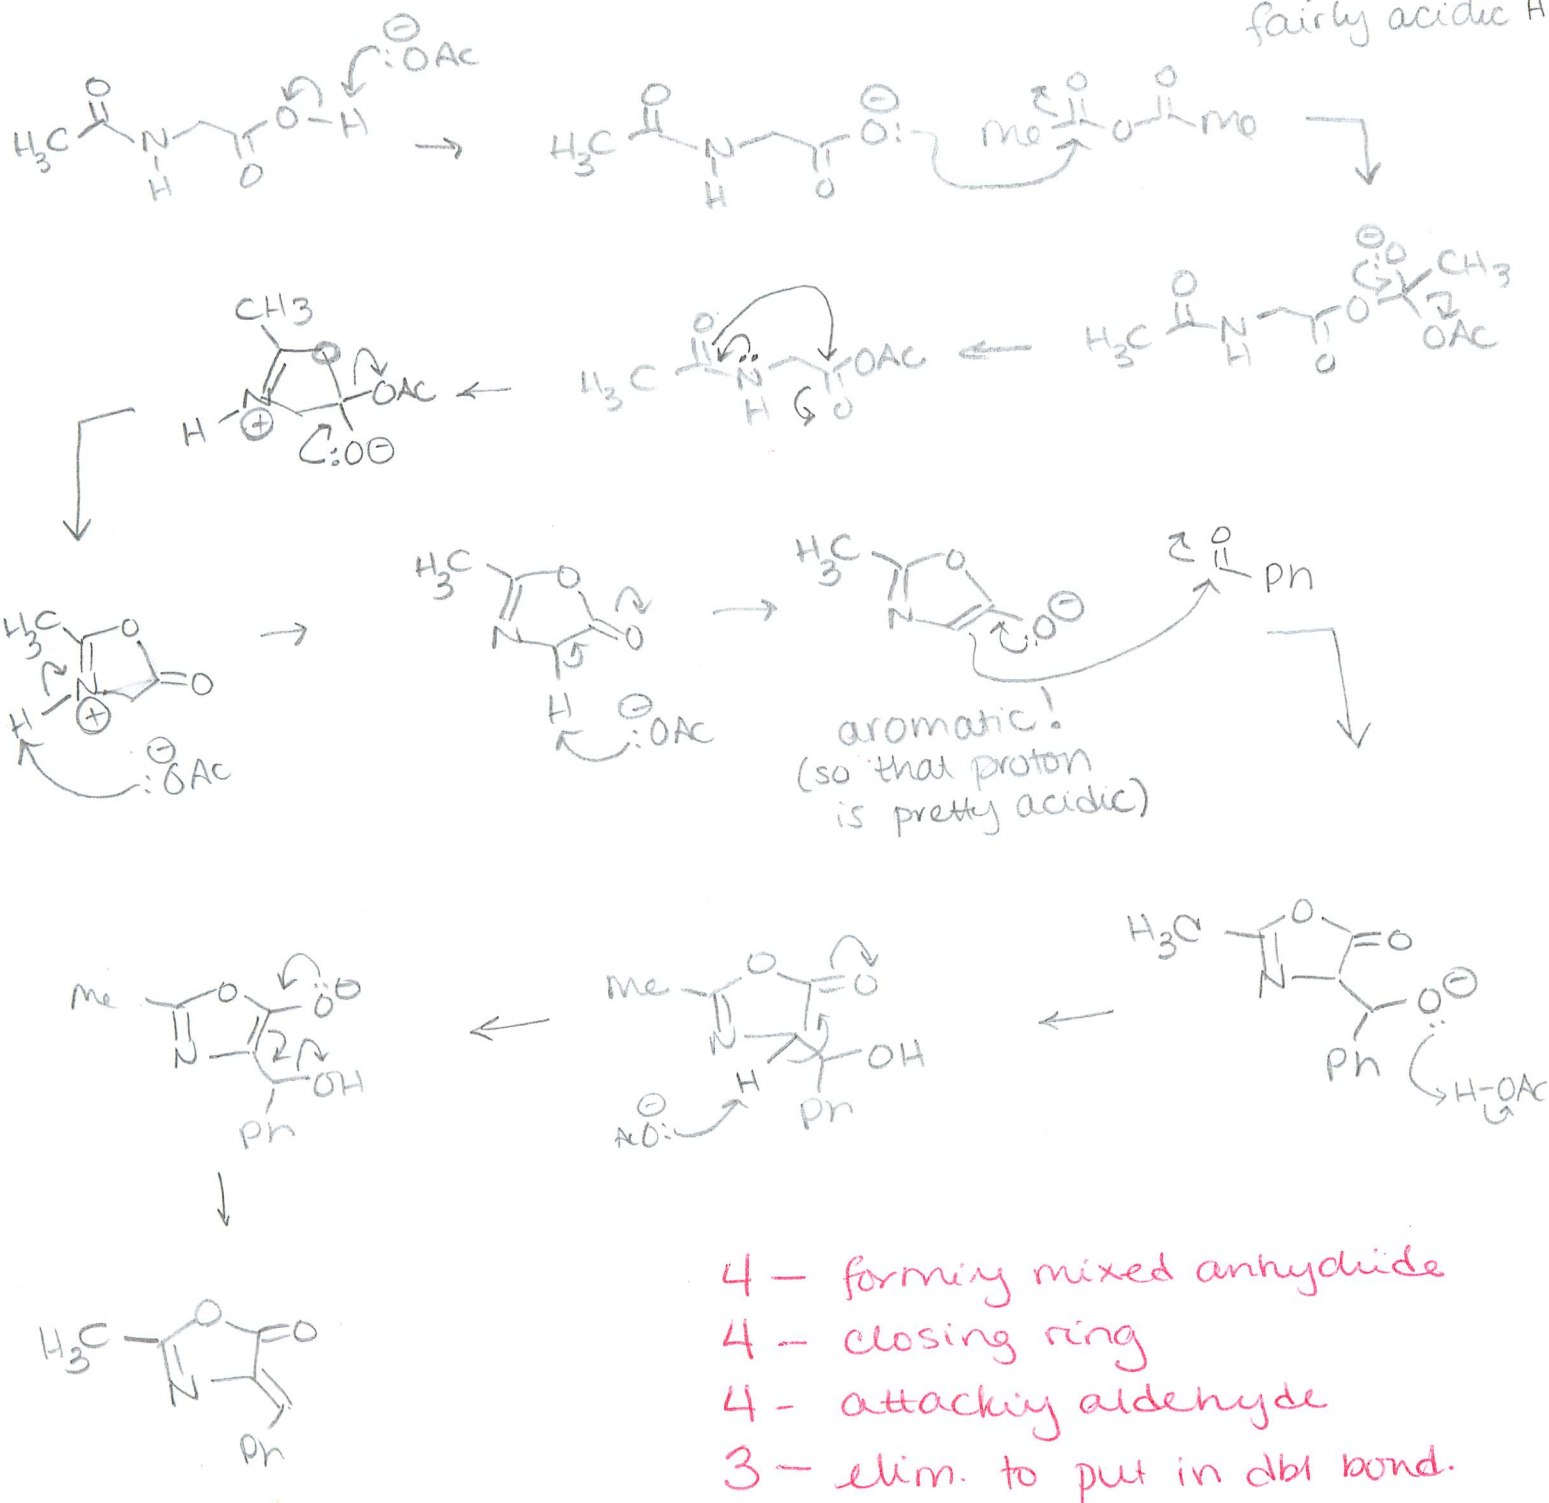 fairly acidic H
⊖
:OAc
O
H₃C N O–H
H O
O ⊖
H₃C N O:
H O
O O
Me O Me
⊖
:O CH₃
O O
H₃C N OAc
H O
O
H₃C N: OAc
H O
CH3
O
OAc
H N
⊕
:O⊖
H₃C O
N O
H ⊕
⊖
:OAc
H₃C O
N O
H ⊖
:OAc
H₃C O
N :O⊖
O
Ph
aromatic!
(so that proton
is pretty acidic)
H₃C O
O
N O⊖
Ph
H–OAc
Me O
O
N OH
H Ph
⊖
AcO:
Me O
O⊖
N OH
Ph
H₃C O
O
N
Ph
4 – forming mixed anhydride
4 – closing ring
4 - attacking aldehyde
3 – elim. to put in dbl bond.